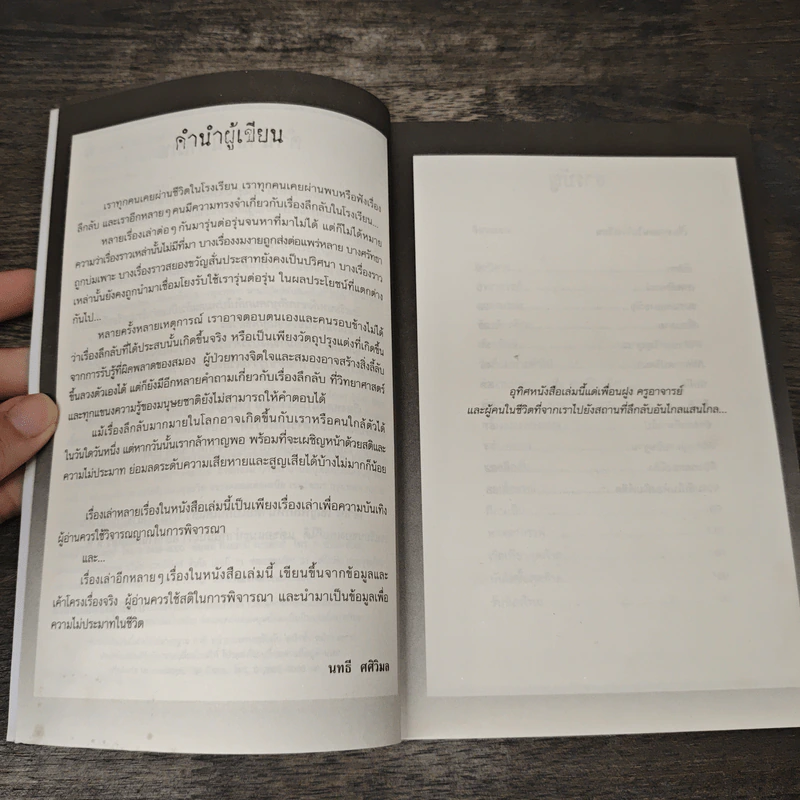 คำนำผู้เขียน
เราทุกคนเคยผ่านชีวิตในโรงเรียน เราทุกคนเคยผ่านพบหรือฟังเรื่อง
ลึกลับ และเราอีกหลายๆ คนมีความทรงจำเกี่ยวกับเรื่องลึกลับในโรงเรียน...
หลายเรื่องเล่าต่อๆ กันมารุ่นต่อรุ่นจนหาที่มาไม่ได้ แต่ก็ไม่ได้หมาย
ความว่าเรื่องราวเหล่านั้นไม่มีที่มา บางเรื่องงมงายถูกส่งต่อแพร่หลาย บางศรัทธา
ถูกบ่มเพาะ บางเรื่องราวสยองขวัญสั่นประสาทยังคงเป็นปริศนา บางเรื่องราว
เหล่านั้นยังคงถูกนำมาเชื่อมโยงรับใช้เรารุ่นต่อรุ่น ในผลประโยชน์ที่แตกต่าง
กันไป...
หลายครั้งหลายเหตุการณ์ เราอาจตอบตนเองและคนรอบข้างไม่ได้
ว่าเรื่องลึกลับที่ได้ประสบนั้นเกิดขึ้นจริง หรือเป็นเพียงวัตถุปรุงแต่งที่เกิดขึ้น
จากการรับรู้ที่ผิดพลาดของสมอง ผู้ป่วยทางจิตใจและสมองอาจสร้างสิ่งลี้ลับ
ขึ้นลวงตัวเองได้ แต่ก็ยังมีอีกหลายคำถามเกี่ยวกับเรื่องลึกลับ ที่วิทยาศาสตร์
และทุกแขนงความรู้ของมนุษยชาติยังไม่สามารถให้คำตอบได้
แม้เรื่องลึกลับมากมายในโลกอาจเกิดขึ้นกับเราหรือคนใกล้ตัวได้
ในวันใดวันหนึ่ง แต่หากวันนั้นเรากล้าหาญพอ พร้อมที่จะเผชิญหน้าด้วยสติและ
ความไม่ประมาท ย่อมลดระดับความเสียหายและสูญเสียได้บ้างไม่มากก็น้อย
เรื่องเล่าหลายเรื่องในหนังสือเล่มนี้เป็นเพียงเรื่องเล่าเพื่อความบันเทิง
ผู้อ่านควรใช้วิจารณญาณในการพิจารณา
และ...
เรื่องเล่าอีกหลายๆ เรื่องในหนังสือเล่มนี้ เขียนขึ้นจากข้อมูลและ
เค้าโครงเรื่องจริง ผู้อ่านควรใช้สติในการพิจารณา และนำมาเป็นข้อมูลเพื่อ
ความไม่ประมาทในชีวิต
นทธี ศศิวิมล
อุทิศหนังสือเล่มนี้แด่เพื่อนฝูง ครูอาจารย์
และผู้คนในชีวิตที่จากเราไปยังสถานที่ลึกลับอันไกลแสนไกล...